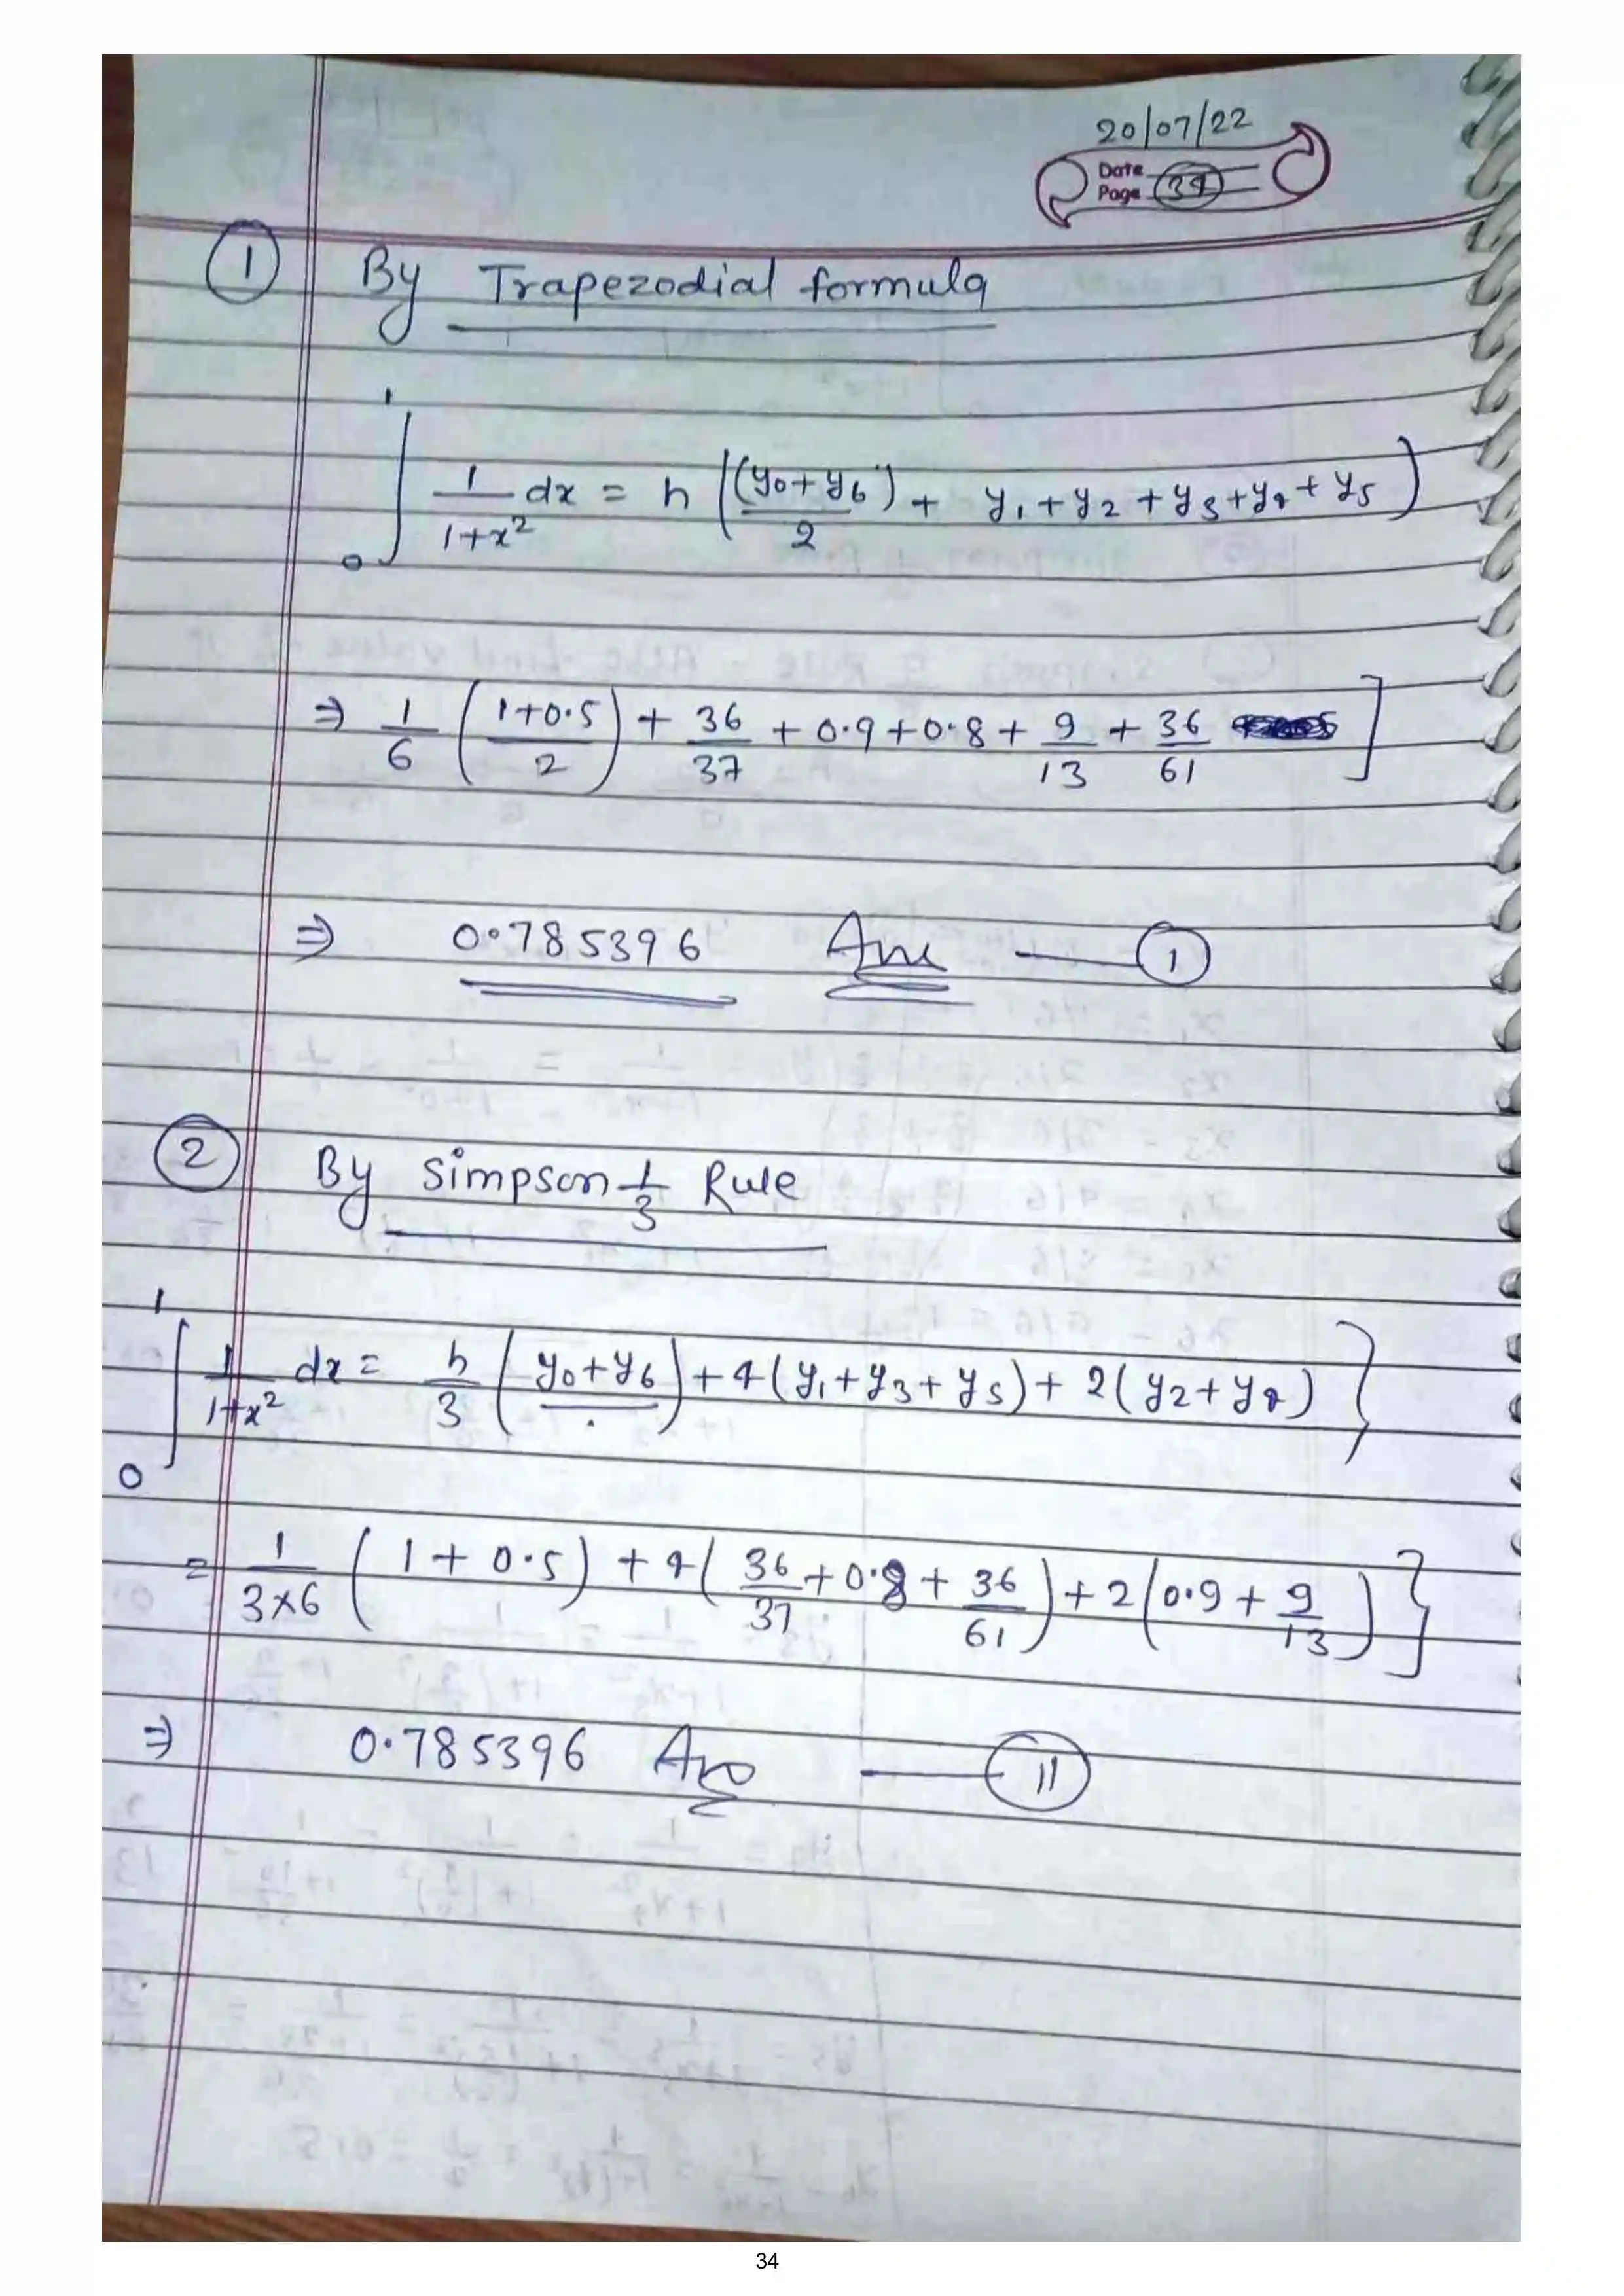 20/07/22
Date
Page 34
① By Trapezodial formula
∫₀¹ 1/(1+x²) dx = h ((y₀+y₆)/2 + y₁+y₂+y₃+y₄+y₅)
⇒ 1/6 ((1+0.5)/2) + 36/37 + 0.9+0.8+ 9/13 + 36/61 ]
⇒ 0.785396 Ans — ①
② By Simpson 1/3 Rule
∫₀¹ 1/(1+x²) dx = h/3 (y₀+y₆) + 4(y₁+y₃+y₅) + 2(y₂+y₄) }
= 1/(3×6) (1+0.5) + 4(36/37 + 0.8 + 36/61) + 2(0.9 + 9/13) }
⇒ 0.785396 Ans — ⑪
34